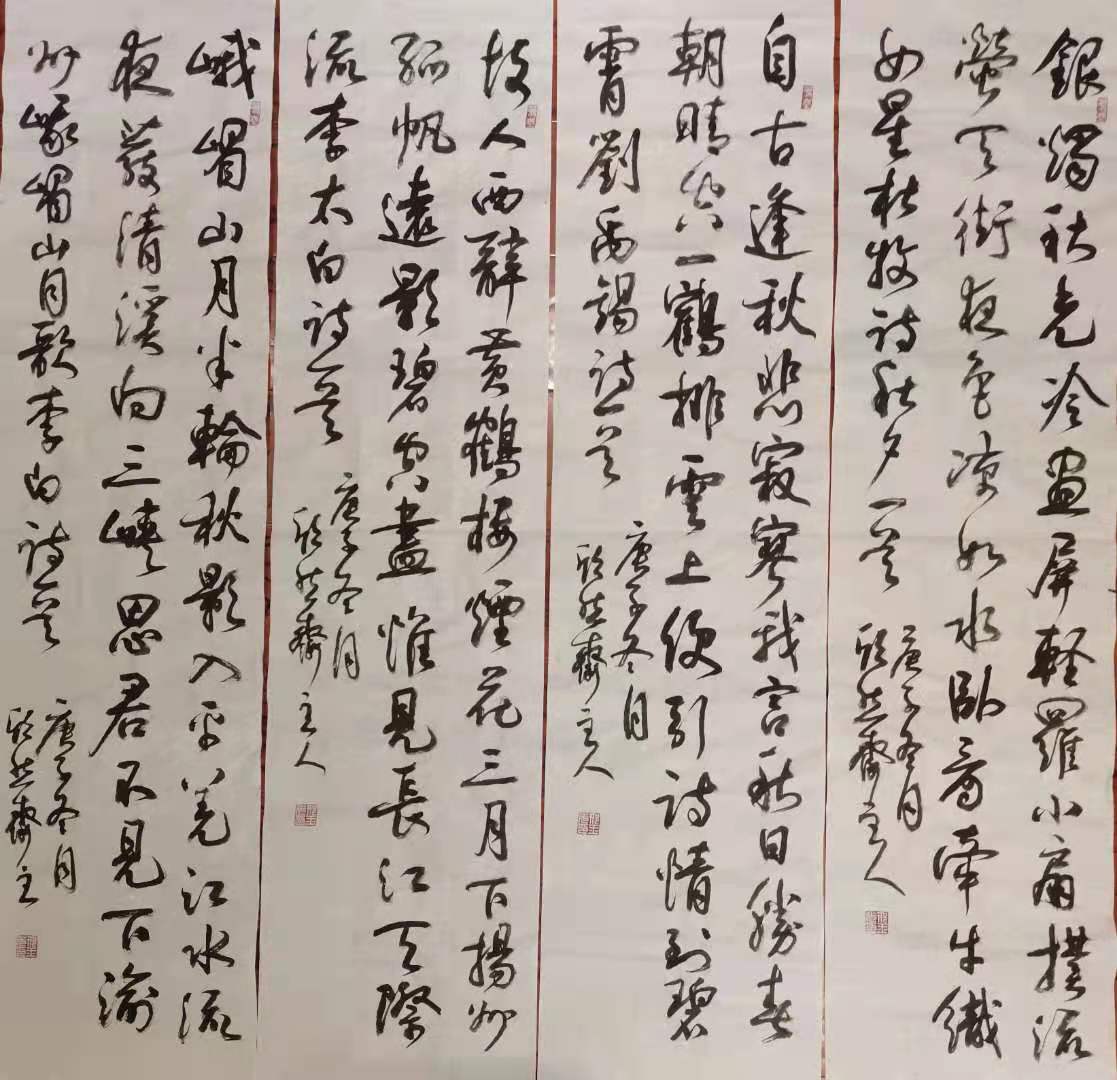 銀燭秋光冷畫屏輕羅小扇撲流
螢天街夜色涼如水臥看牽牛織
女星杜牧詩秋夕一首
庚子冬月
欣然齋主人
自古逢秋悲寂寥我言秋日勝春
朝晴空一鶴排雲上便引詩情到碧
霄劉禹錫詩一首
庚子冬月
欣然齋主人
故人西辭黃鶴樓煙花三月下揚州
孤帆遠影碧空盡惟見長江天際
流李太白詩一首
庚子冬月
欣然齋主人
峨嵋山月半輪秋影入平羌江水流
夜發清溪向三峽思君不見下渝
州峨嵋山月歌李白詩一首
庚子冬月
欣然齋主